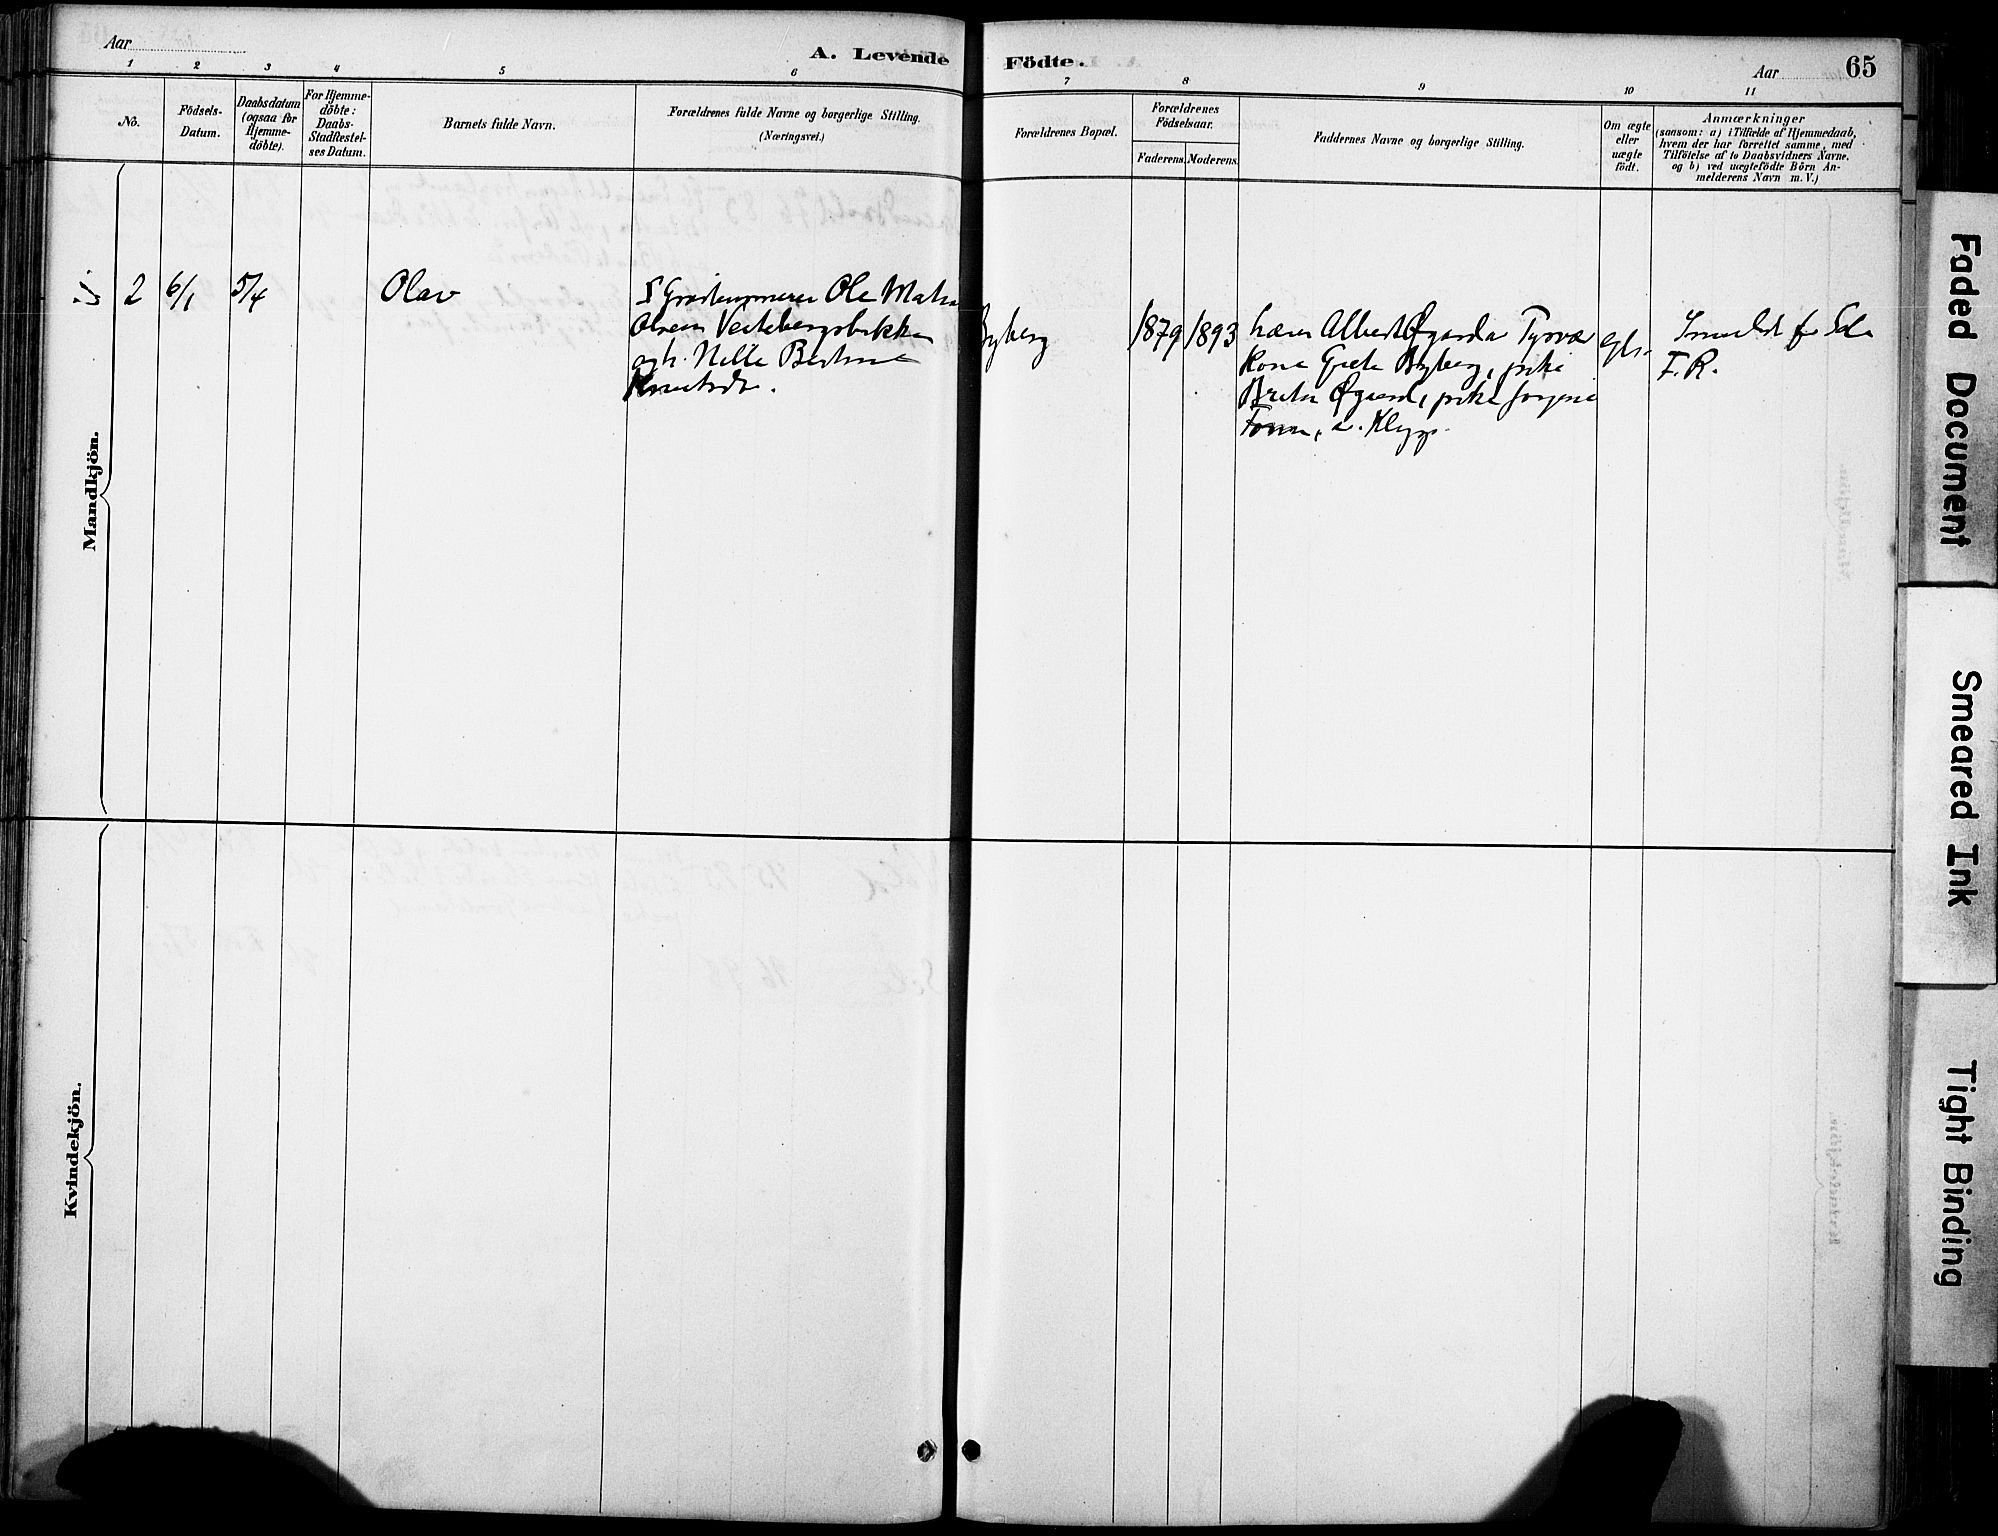 Aar
A. Levende Födte.
Aar
65
1 2 3 4 5 6 7 8 9 10 11
No.
Födsels-
Datum.
Daabsdatum
(ogsaa for
Hjemme-
döbte).
For Hjemme-
döbte:
Daabs-
Stadfæstel-
ses Datum.
Barnets fulde Navn.
Forældrenes fulde Navne og borgerlige Stilling.
(Næringsvei.)
Forældrenes Bopæl.
Forældrenes
Födselsaar.
Faderens. Moderens.
Faddernes Navne og borgerlige Stilling.
Om ægte
eller
uægte
födt.
Anmærkninger
(saasom: a) i Tilfælde af Hjemmedaab,
hvem der har forrettet samme, med
Tilföielse af to Daabsvidners Navne,
og b) ved uægtefödte Börn An-
melderens Navn m. V.)
Mandkjön.
2 6/1 5/4 Olav
Ole
Olsen
og h. Nille
Byberg
1879 1893
Albert Øgaard
Kone Byberg, pike
Øgaard, pike
Klepp.
Sola
F. R.
Kvindekjön.
Faded Document
Smeared Ink
Tight Binding